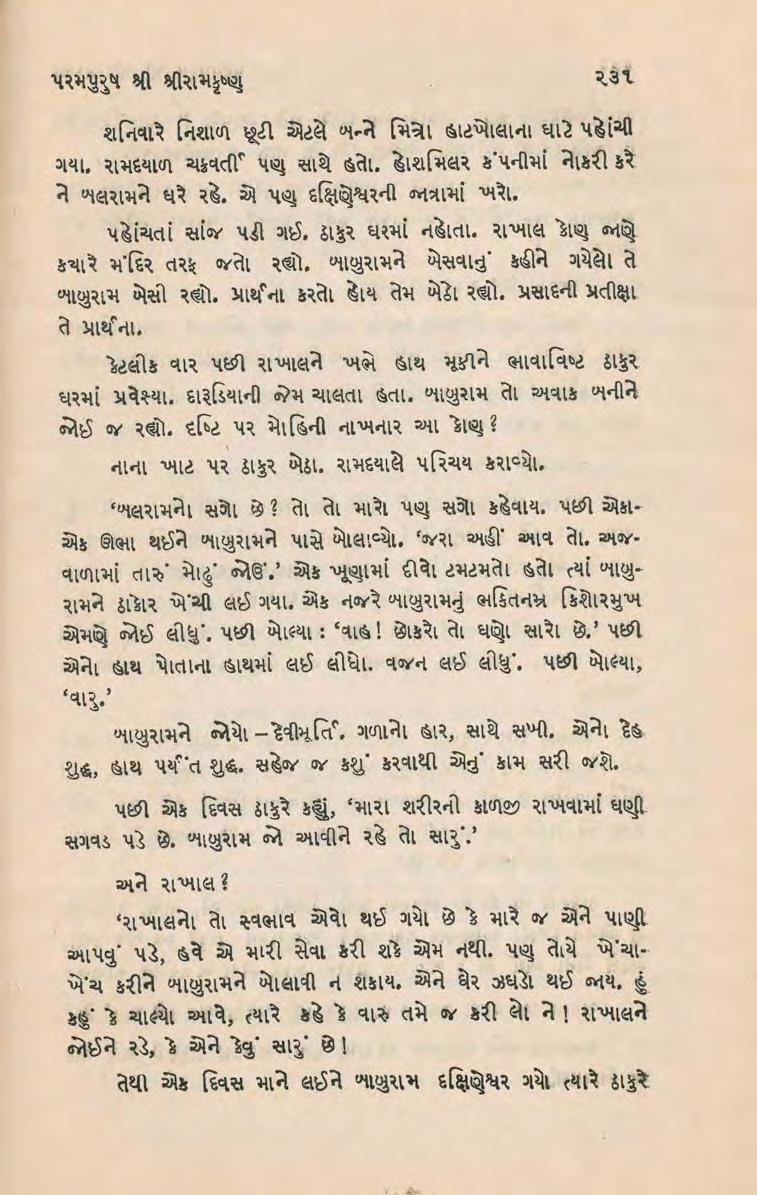 પરમપુરુષ શ્રી શ્રીરામકૃષ્ણ ૨૩૧
શનિવારે નિશાળ છૂટી એટલે બન્ને મિત્રો હાટખોલાના ઘાટે પહોંચી
ગયા. રામદયાળ ચક્રવર્તી પણ સાથે હતા. હોશમિલર કંપનીમાં નોકરી કરે
ને બલરામને ઘરે રહે. એ પણ દક્ષિણેશ્વરની જાત્રામાં ખરો.
પહોંચતાં સાંજ પડી ગઈ. ઠાકુર ઘરમાં નહોતા. રાખાલ કોણ જાણે
કયારે મંદિર તરફ જતો રહ્યો. બાબુરામને બેસવાનું કહીને ગયેલો તે
બાબુરામ બેસી રહ્યો. પ્રાર્થના કરતો હોય તેમ બેઠો રહ્યો. પ્રસાદની પ્રતીક્ષા
તે પ્રાર્થના.
કેટલીક વાર પછી રાખાલને ખભે હાથ મૂકીને ભાવાવિષ્ટ ઠાકુર
ઘરમાં પ્રવેશ્યા. દારૂડિયાની જેમ ચાલતા હતા. બાબુરામ તો અવાક બનીને
જોઈ જ રહ્યો. દષ્ટિ પર મોહિની નાખનાર આ કોણ ?
નાના ખાટ પર ઠાકુર બેઠા. રામદયાલે પરિચય કરાવ્યો.
‘બલરામનો સગો છે ? તો તો મારો પણ સગો કહેવાય. પછી એકા-
એક ઊભા થઈને બાબુરામને પાસે બોલાવ્યો. ‘જરા અહીં આવ તો. અજ-
વાળામાં તારું મોઢું જોઉં.’ એક ખૂણામાં દીવો ટમટમતો હતો ત્યાં બાબુ-
રામને ઠાકોર ખેંચી લઈ ગયા. એક નજરે બાબુરામનું ભકિતનમ્ર કિશોરમુખ
એમણે જોઈ લીધું. પછી બોલ્યા : ‘વાહ ! છોકરો તો ઘણો સારો છે.’ પછી
એનો હાથ પોતાના હાથમાં લઈ લીધો. વજન લઈ લીધું. પછી બોલ્યા,
‘વારુ.’
બાબુરામને જોયો – દેવીમૂર્તિ. ગળાનો હાર, સાથે સખી. એનો દેહ
શુદ્ધ, હાથ પર્યંત શુદ્ધ. સહેજ જ કશું કરવાથી એનું કામ સરી જશે.
પછી એક દિવસ ઠાકુરે કહ્યું, ‘મારા શરીરની કાળજી રાખવામાં ઘણી
સગવડ પડે છે. બાબુરામ જો આવીને રહે તો સારું.’
અને રાખાલ ?
‘રાખાલનો તો સ્વભાવ એવો થઈ ગયો છે કે મારે જ એને પાણી
આપવું પડે, હવે એ મારી સેવા કરી શકે એમ નથી. પણ તોયે ખેંચા-
ખેંચ કરીને બાબુરામને બોલાવી ન શકાય. એને ઘેર ઝઘડો થઈ જાય. હું
કહું કે ચાલ્યો આવે, ત્યારે કહે કે વારુ તમે જ કરી લો ને ! રાખાલને
જોઈને રડે, કે એને કેવું સારું છે !
તેથી એક દિવસ માને લઈને બાબુરામ દક્ષિણેશ્વર ગયો ત્યારે ઠાકુરે